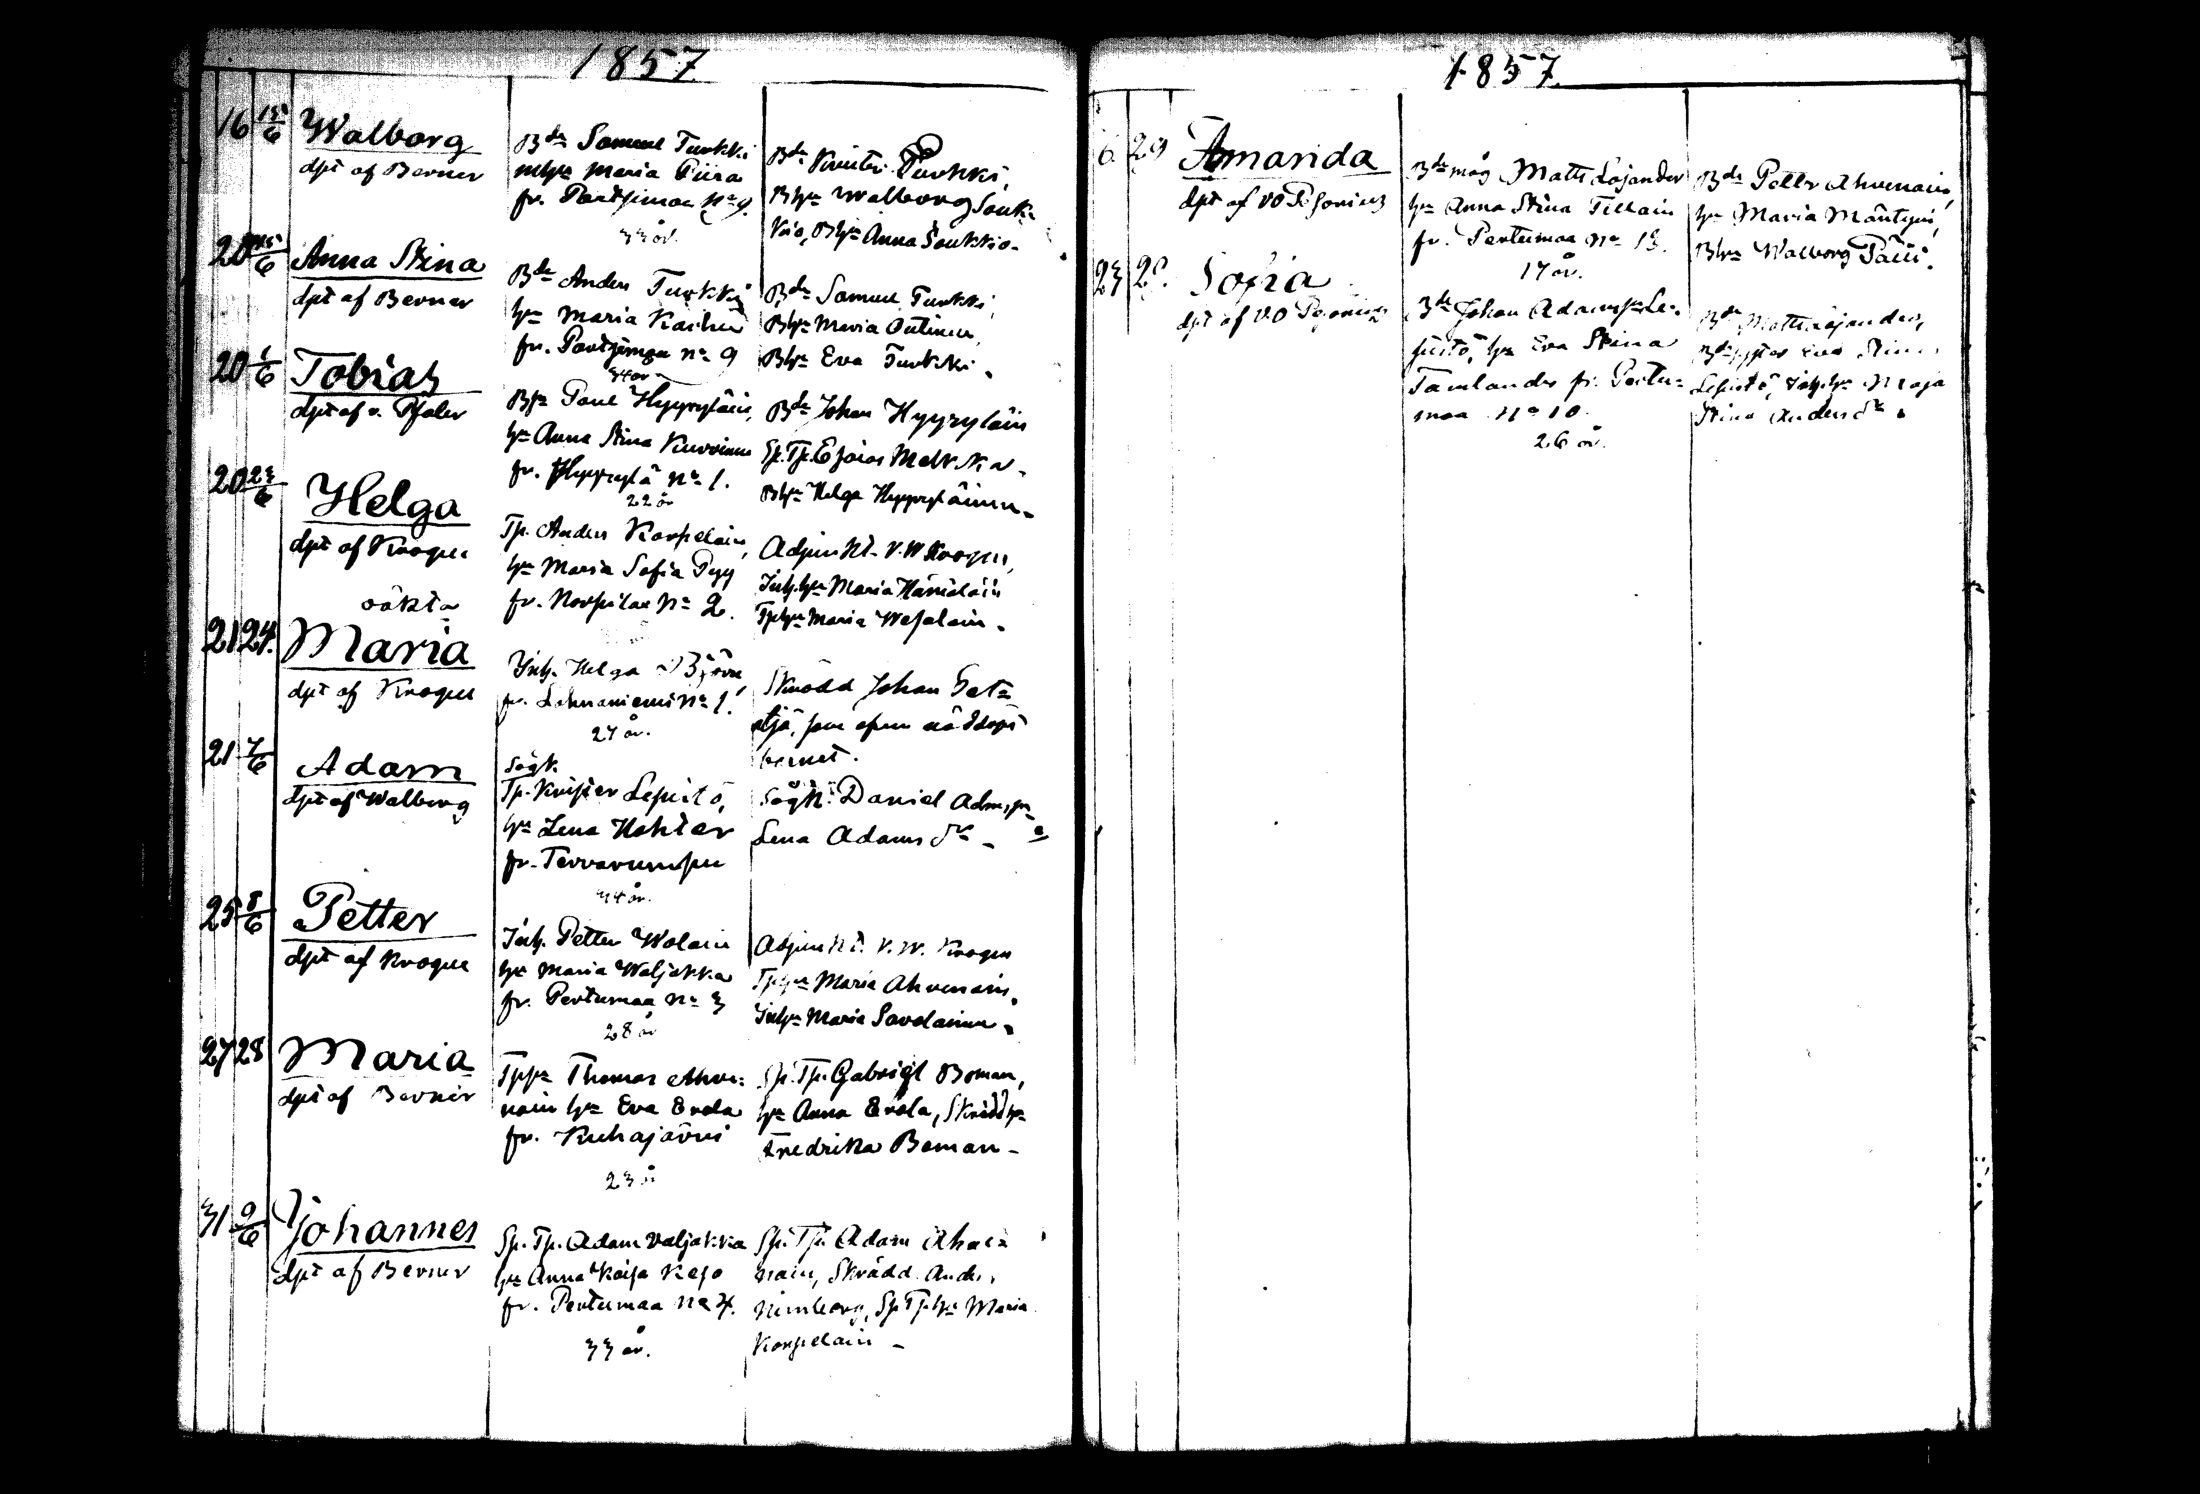 1857
16 15/6 Walborg
dpt af Berner
Bde Samuel Turkki
mhu Maria Piira
fr. Partsimaa No 9.
33 år.
Bde Turkki,
Bhu Walborg Souk-
kio, Bhu Anna Soukkio.
20 15/6 Anna Stina
dpt af Berner
Bde Anders Turkki
hu Maria
fr. Partsimaa No 9
34 år
Bde Samuel Turkki,
Bhu Maria Outinen,
Bhu Eva Turkki.
20 1/6 Tobias
dpt af v. Pfaler
Bsn Paul Hyyryläin,
hu Anna Stina
fr. Hyyrylä No 1.
22 år
Bde Johan Hyyryläin
Sp. Tp. Esaias
Bhu Helga Hyyryläinen.
20 23/6 Helga
dpt af Krogen
Tp. Anders Korpelain,
hu Maria Sofia Pyy
fr. Korpilax No 2.
Adjunkt. V. W. Krogen,
Inh. hu Maria Hämäläin
Tphu Maria
oäkta
21 24. Maria
dpt af Krogen
Inh. Helga Björn,
fr. Lahnaniemi No 1.
27 år.
Skrädd Johan
som äfven nöddöpt
barnet.
21 7/6 Adam
dpt af Walberg
Sågk.
Tp. Krister Lepistö,
hu Lena Hohter
fr. Tervarumpu
34 år.
Sågk. Daniel Adamsn
Lena Adamsdr
25 8/6 Petter
dpt af Krogen
Inh. Petter Wolain
hu Maria Waljakka
fr. Pertumaa No 3
28 år
Adjunkt. V. W. Krogen
Tphu Maria Ahvenain,
Inhu Maria Savolainen.
27 28 Maria
dpt af Berner
Tpsn Thomas Ahve-
nain hu Eva Erola
fr. Kuhajärvi
23 år
Sp. Tp. Gabriel Boman,
hu Anna Erola, Skräddhu
Fredrika Boman
31 9/6 Johannes
dpt af Berner
Sp. Tp. Adam Valjakka
hu Anna Kaisa Keso
fr. Pertumaa No 4.
33 år.
Sp. Tp. Adam Ahve-
nain, Skrädd. Anders
Nimberg, Sp Tphu Maria
Korpelain
1857
6. 29 Amanda
dpt af
Bde måg Matts Lojander
hu Anna Stina Tillain
fr. Pertumaa No 13.
17 år.
Bde Petter Ahvenain,
hu Maria Mäntyin,
Bhu Walborg
23 Sofia
dpt af
Bde Johan Adamsn Le-
pistö, hu Eva Stina
Tamlander fr. Pertu-
maa No 10
26 år.
Bde Matts Lojander,
Eva Stina
Lepistö, Inh.hu Maja
Stina Andersdr